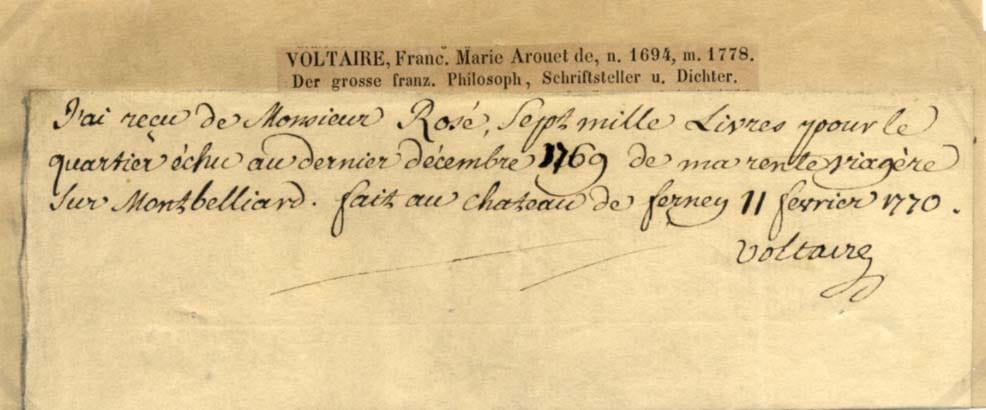 VOLTAIRE, Franc. Marie Arouet de, n. 1694, m. 1778.
Der grosse franz. Philosoph, Schriftsteller u. Dichter.
J'ai reçu de Monsieur Rosé, Sept mille Livres pour le
quartier échu au dernier décembre 1769 de ma rente viagère
Sur Montbelliard. fait au chateau de ferney 11 fevrier 1770.
Voltaire